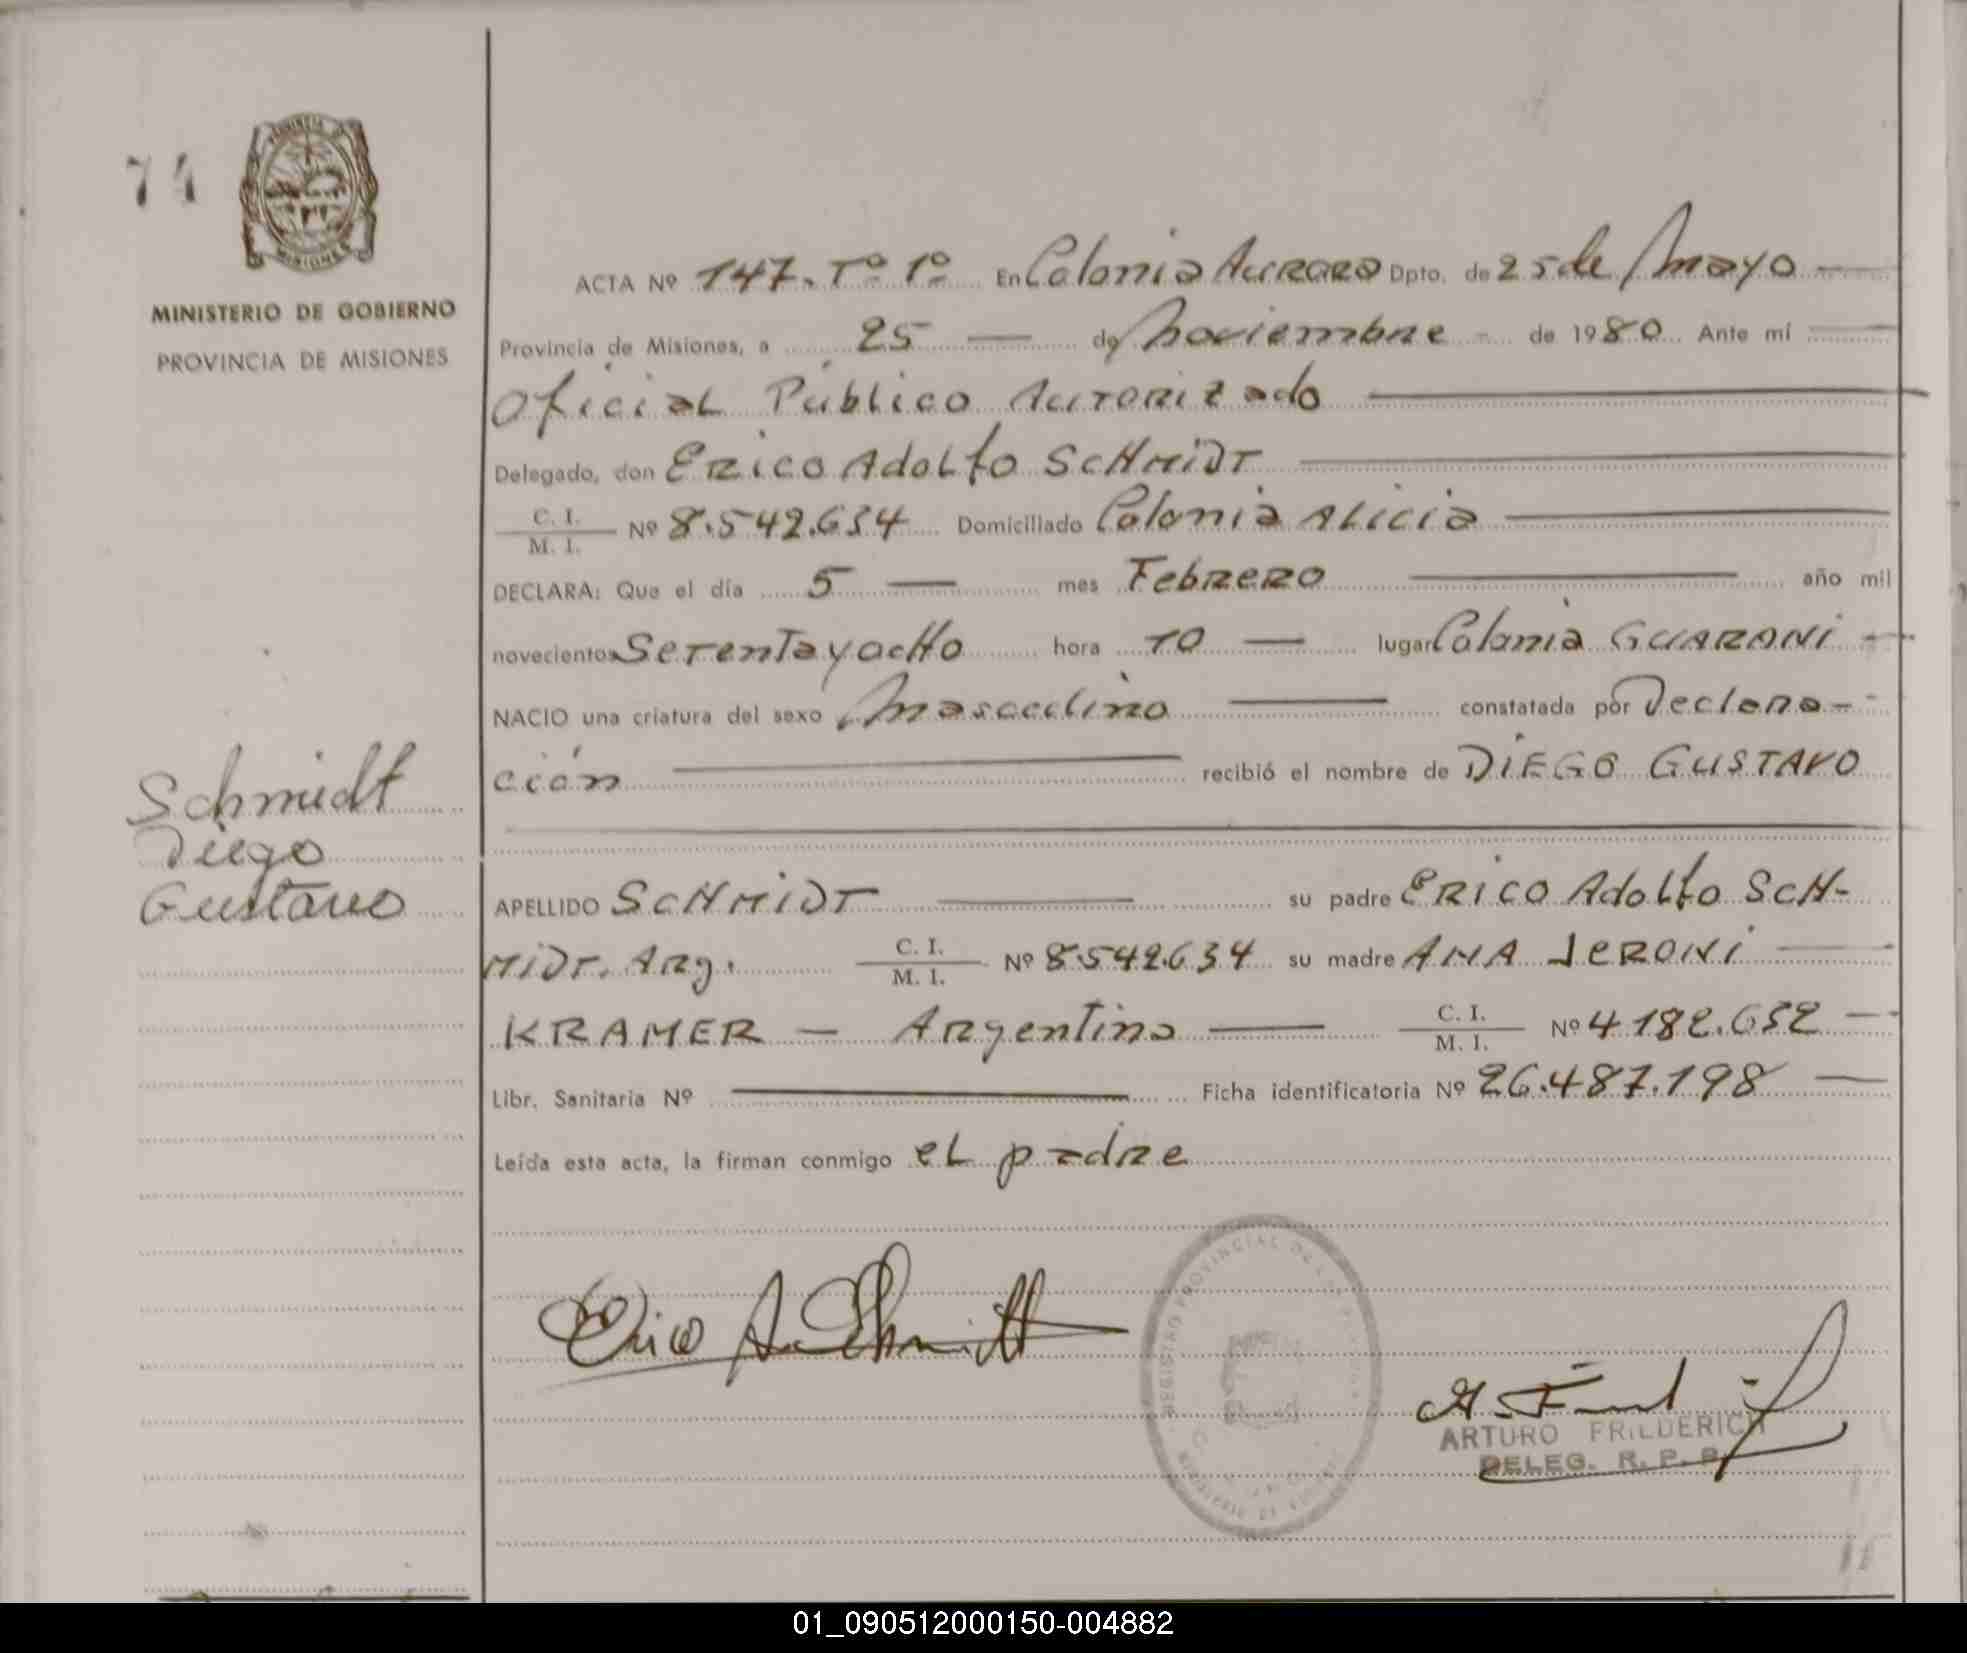 74
MINISTERIO DE GOBIERNO
PROVINCIA DE MISIONES
ACTA Nº 147. Tº 1º En Colonia Aurora Dpto. de 25 de Mayo
Provincia de Misiones, a 25 de Noviembre de 1980 Ante mí
Oficial Público Autorizado
Delegado, don Erico Adolfo Schmidt
C. I.
M. I. Nº 8.542.634 Domiciliado Colonia Alicia
DECLARA: Que el día 5 mes Febrero año mil
novecientos Setentayocho hora 10 lugar Colonia GUARANI
NACIO una criatura del sexo Masculino constatada por Declara-
ción recibió el nombre de DIEGO GUSTAVO
Schmidt
Diego
Gustavo
APELLIDO SCHMIDT su padre Erico Adolfo Sch-
midt. Arg. C. I.
M. I. Nº 8.542.634 su madre ANA JERONI
KRAMER — Argentina C. I.
M. I. Nº 4.182.632
Libr. Sanitaria Nº Ficha identificatoria Nº 26.487.198
Leída esta acta, la firman conmigo el padre
Erico A. Schmidt
REGISTRO PROVINCIAL DE LAS
ARTURO FRIEDERICH
DELEG. R. P. P.
01_090512000150-004882